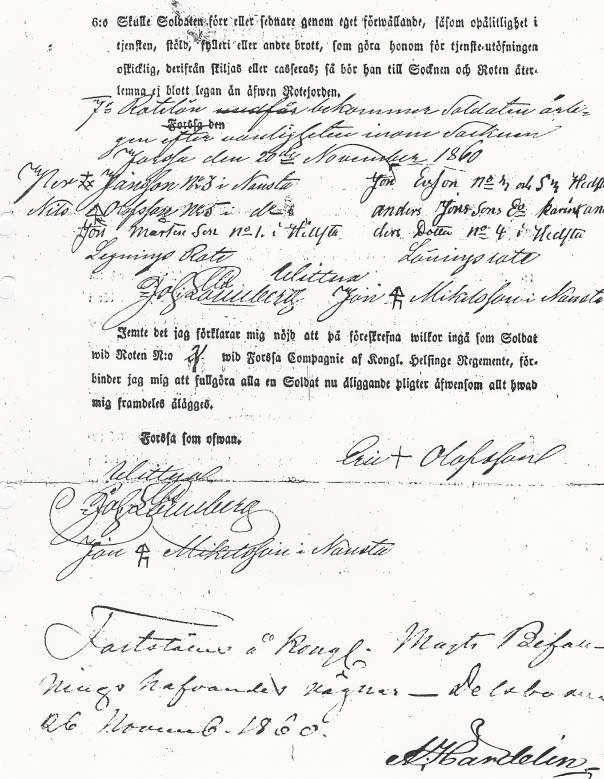 6:o Skulle Soldaten förr eller sednare genom eget förwållande, såsom opålitlighet i
tjensten, stöld, fylleri eller andre brott, som göra honom för tjenste-utöfningen
oskicklig, derifrån skiljas eller casseras; så bör han till Socknen och Roten åter-
lemna ej blott legan än äfwen Rotejorden.
7:o Rotelön bekommer Soldaten årli-
Forssa den
gen efter vanligheten inom Socknen
Forssa den 20de November 1860
Per Jönsson No 3 i Nansta Jon Ersson No
Nils Olofsson No 5 i do anders Jons Sons
Jon Martin Son No 1. i Hedsta ders Dotter No 4 i Hedsta
Legnings Rote Löningsrote
Wittna
Jon Mikelsson i Nansta
Jemte det jag förklarar mig nöjd att på föreskrefna wilkor ingå som Soldat
wid Roten N:o wid Forssa Compagnie af Kongl. Helsinge Regemente, för-
binder jag mig att fullgöra alla en Soldat nu åliggande pligter äfwensom allt hwad
mig framdeles ålägges.
Forssa som ofwan.
Eric Olofsson
Wittna
Jon Mikelsson i Nansta
Fastställes å Kongl. Majts Befall-
nings hafvandes vägnar – Delsbo
26 Novemb. 1860.
A. Hardelin